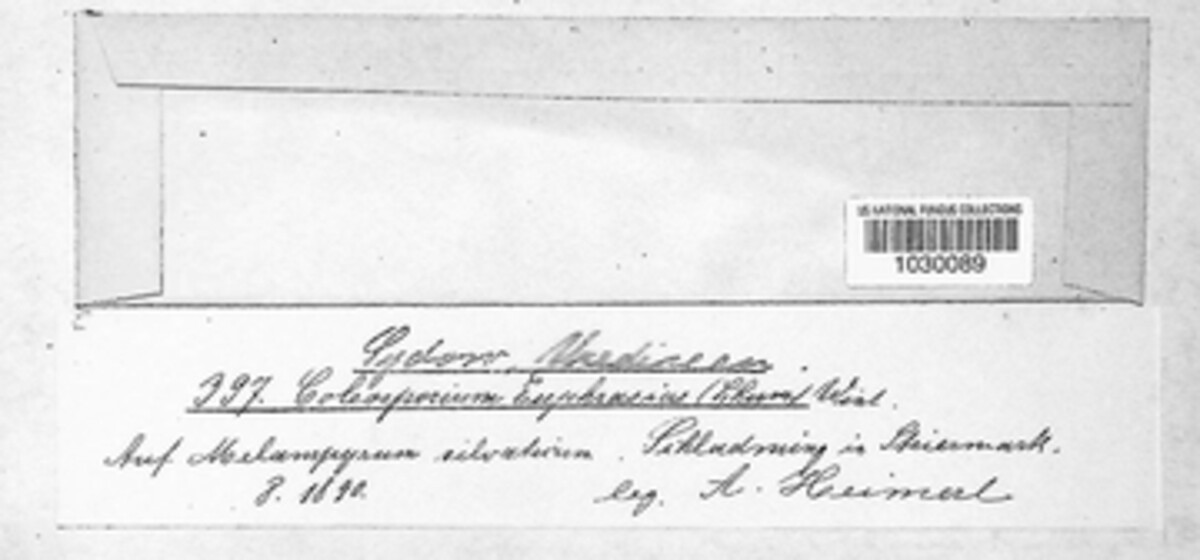 US NATIONAL FUNGUS COLLECTIONS
1030089
Sydow, Uredineen.
397. Coleosporium Euphrasiae (Schum) Wint.
Auf Melampyrum silvaticum. Schladming in Steiermark.
8. 1890. leg. A. Heimerl